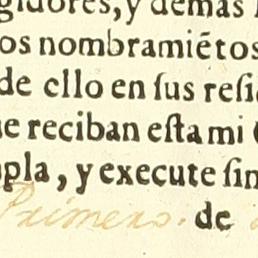 gidores, y demas
os nombramiẽtos
de ello en ſus reſi
ue reciban eſta mi
pla, y execute ſin
Primero. de